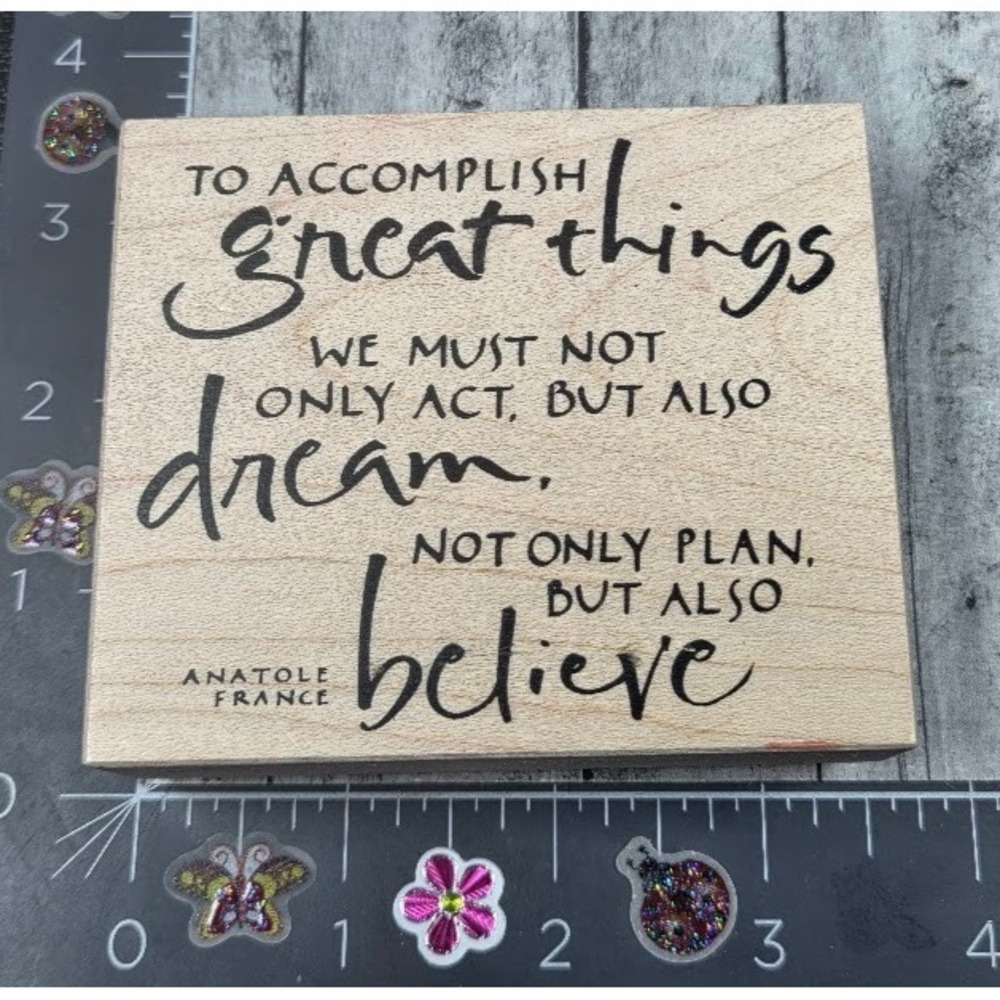 4
3
2
1
0
TO ACCOMPLISH
great things
WE MUST NOT
ONLY ACT, BUT ALSO
dream,
NOT ONLY PLAN,
BUT ALSO
believe
ANATOLE
FRANCE
0 1 2 3 4